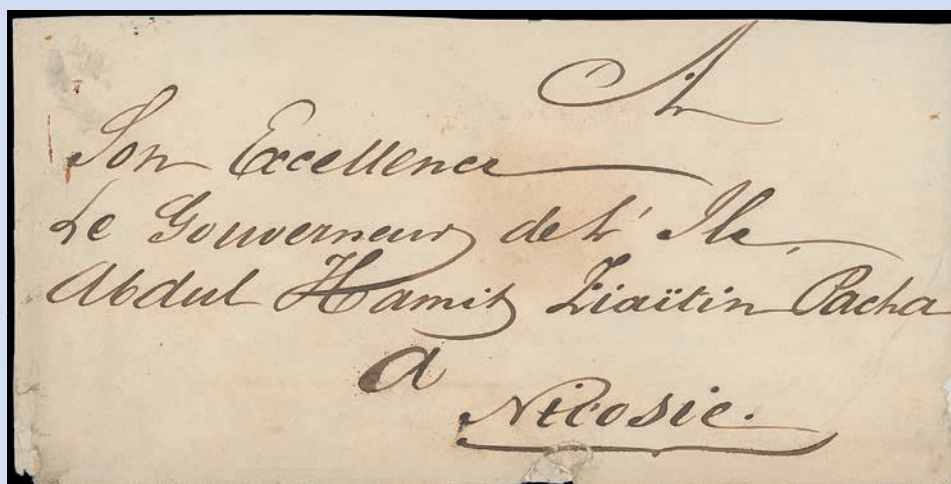 A
Son Excellence
Le Gouverneur de l' Ile
Abdul Hamit Ziaïtin Pacha
a
Nicosie.